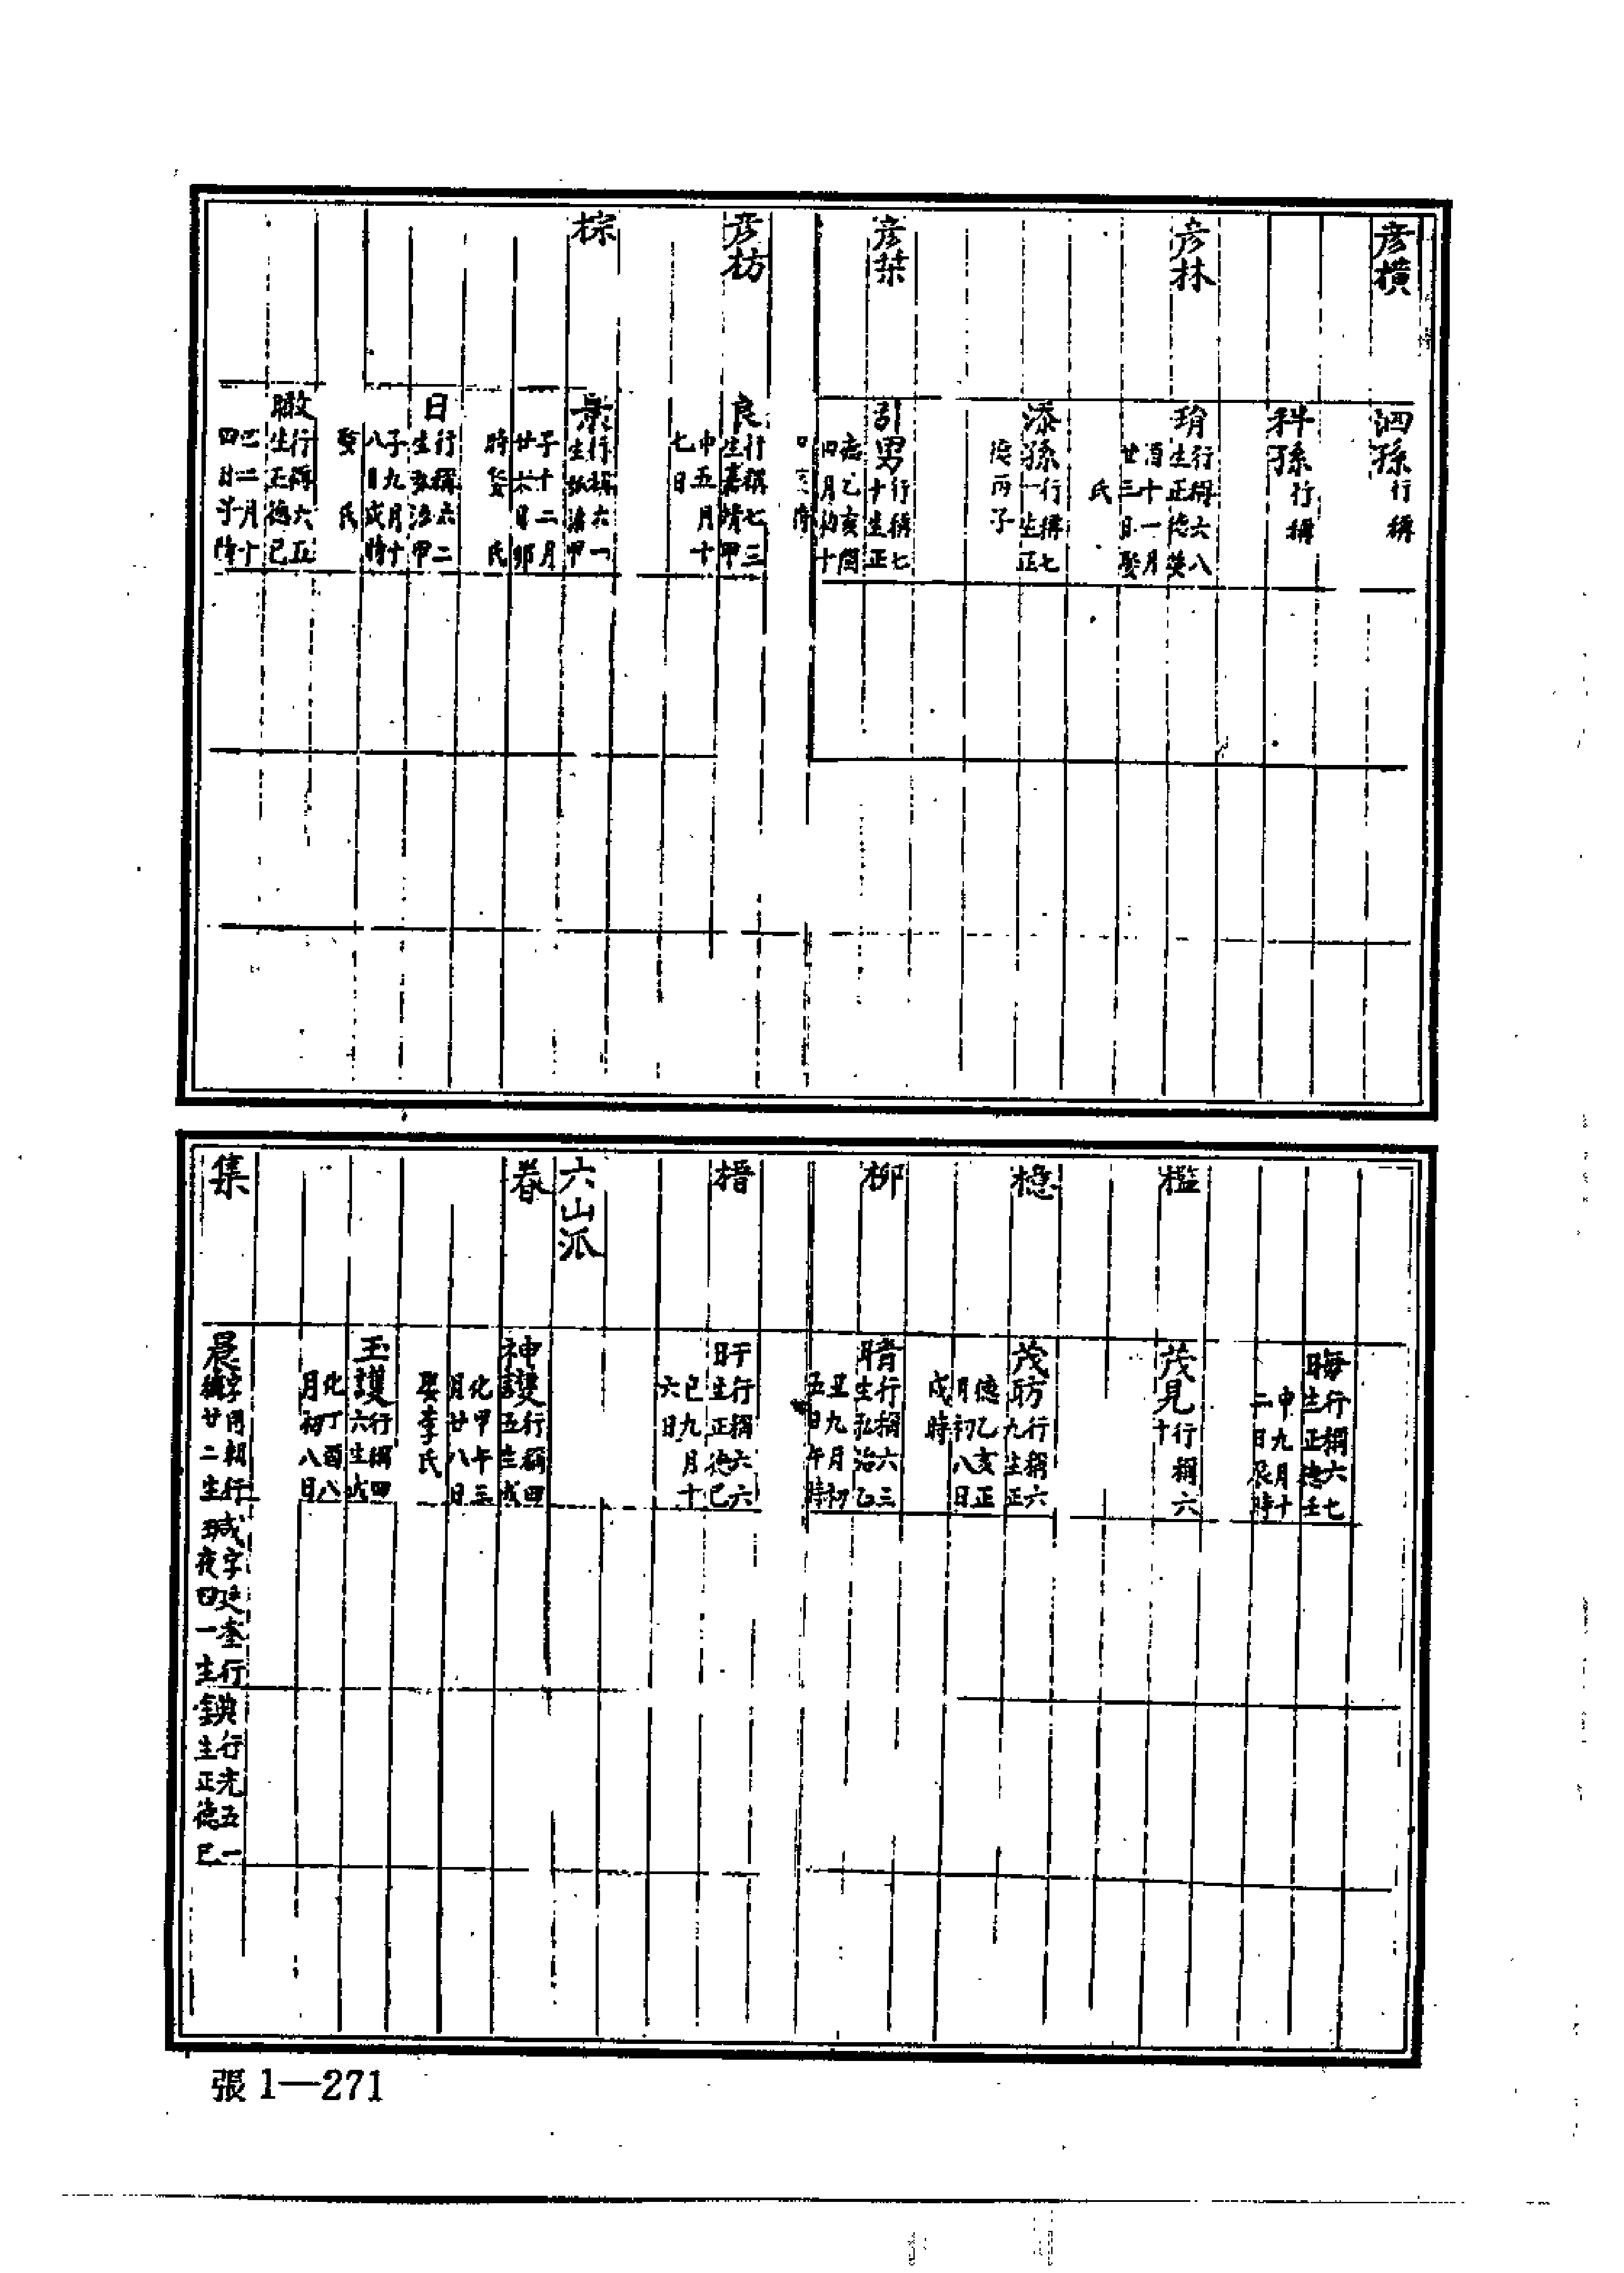 彦橫
泗孫行稱
科孫行稱
彦林
琄行稱六八
生正德癸
酉十一月
廿三日娶
氏
添孫行稱七
一生正
德丙子
彦栞
引男行稱七
十生正
德乙亥酉
四月初十
日時
彦枋
良行稱七三
生嘉靖甲
申五月十
七日
棕
景行稱六一
生弘治甲
子十二月
廿六日卯
時娶氏
日行稱六二
生弘治甲
子九月十
八日戌時
娶氏
暾行稱六五
生正德己
巳二月十
四日子時
晦行稱六七
生正德壬
申九月十
二日辰時
檻
茂見行稱六
十
檼
茂昉行稱六
九生正
德乙亥正
月初八日
戌時
柳
晴行稱六三
生弘治乙
丑九月初
五日午時
榗
旰行稱六六
生正德己
巳九月十
六日
六山派
春
神護行稱四
五生成
化甲午三
月廿八日
娶李氏
玉護行稱四
六生成
化丁酉八
月初八日
集
晟字用朝行
稱廿二生
瑊字廷奎行
夜四一生
錪行光五一
生正德己
張1—271